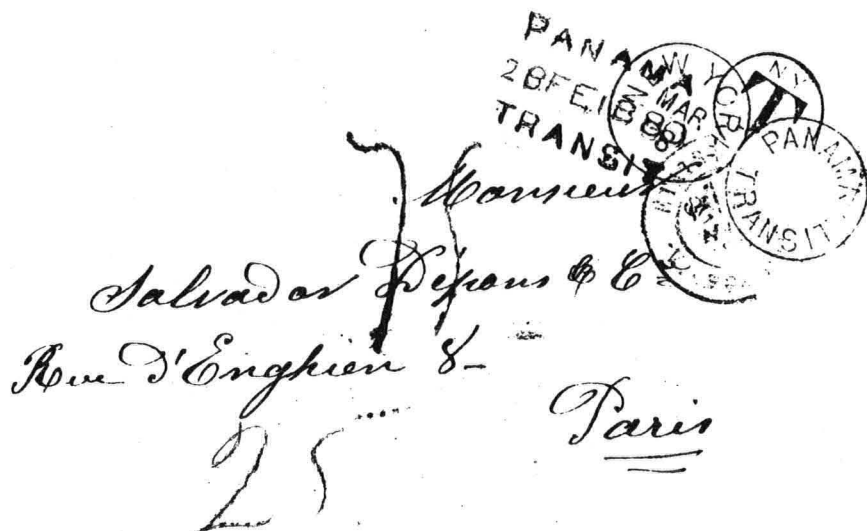 PANAMA
28 FEB 80
TRANSIT
NEW YORK
MAR
NY
T
PANAMA
TRANSIT
75
Monsieur
Salvador
Rue d'Enghien 8
Paris
25